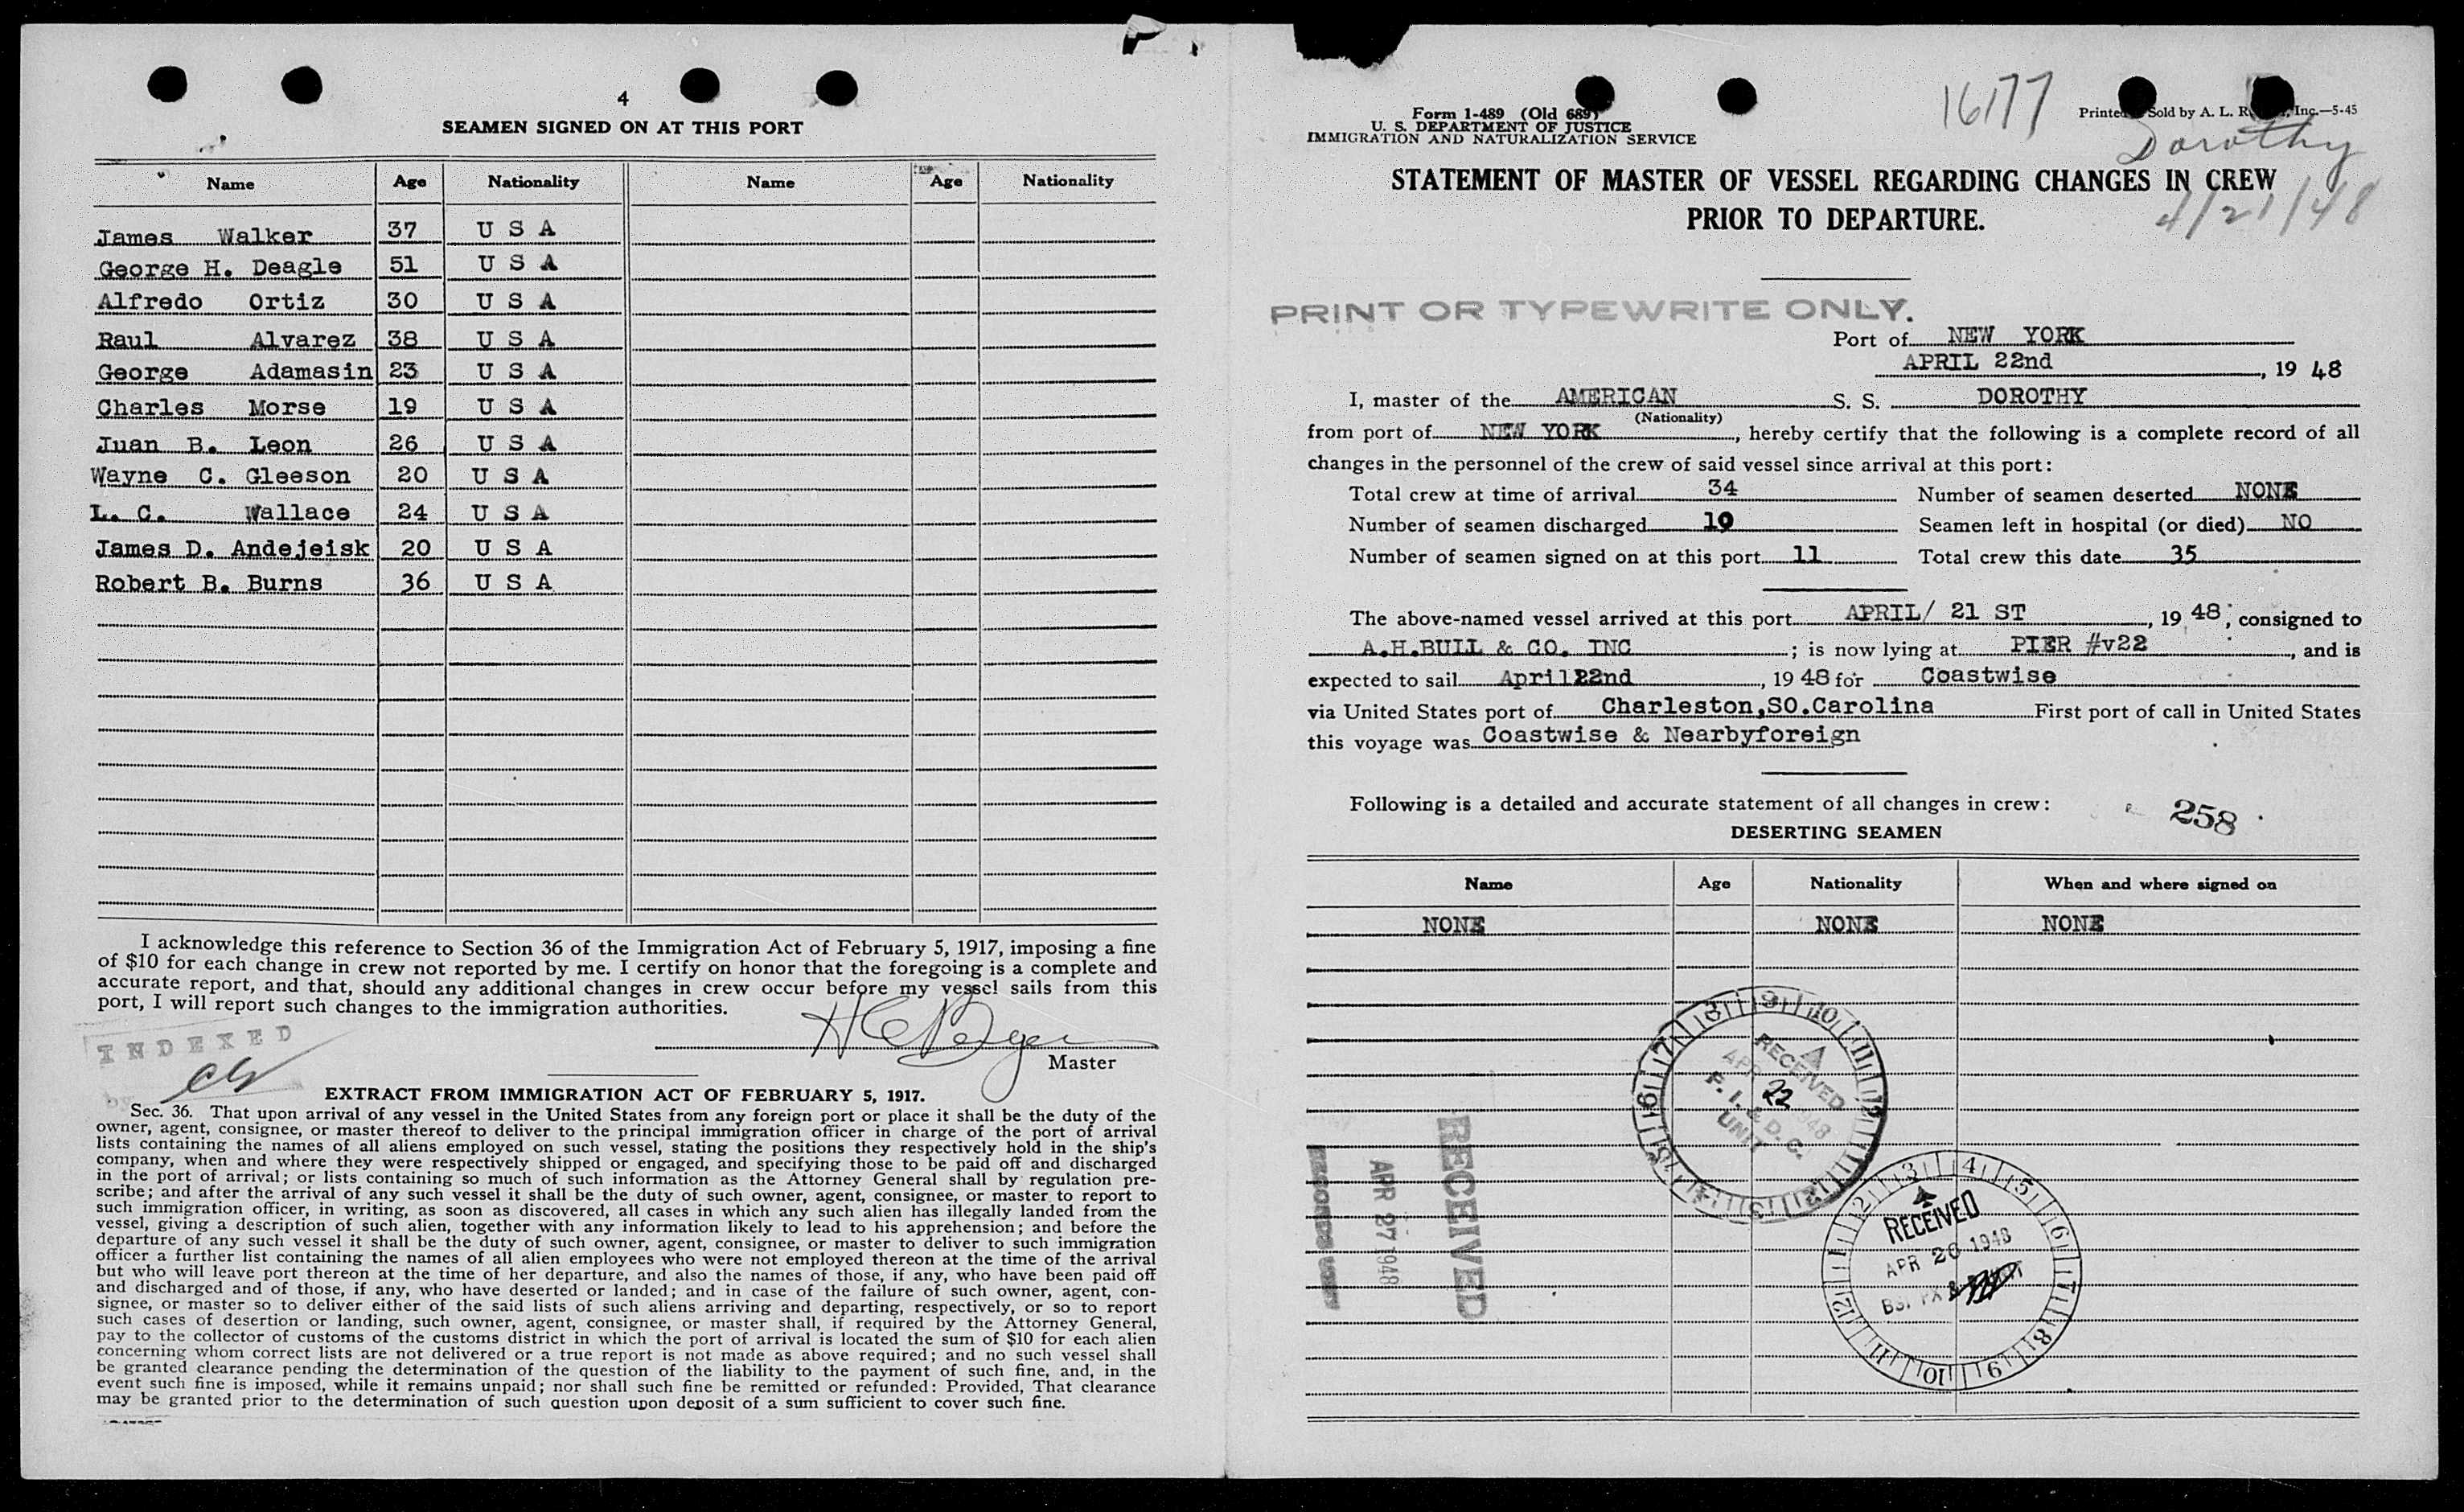 4
SEAMEN SIGNED ON AT THIS PORT
Name Age Nationality Name Age Nationality
James Walker 37 U S A
George H. Deagle 51 U S A
Alfredo Ortiz 30 U S A
Raul Alvarez 38 U S A
George Adamasin 23 U S A
Charles Morse 19 U S A
Juan B. Leon 26 U S A
Wayne C. Gleeson 20 U S A
L. C. Wallace 24 U S A
James D. Andejeisk 20 U S A
Robert B. Burns 36 U S A
I acknowledge this reference to Section 36 of the Immigration Act of February 5, 1917, imposing a fine
of $10 for each change in crew not reported by me. I certify on honor that the foregoing is a complete and
accurate report, and that, should any additional changes in crew occur before my vessel sails from this
port, I will report such changes to the immigration authorities.
INDEXED
by
Master
EXTRACT FROM IMMIGRATION ACT OF FEBRUARY 5, 1917.
Sec. 36. That upon arrival of any vessel in the United States from any foreign port or place it shall be the duty of the
owner, agent, consignee, or master thereof to deliver to the principal immigration officer in charge of the port of arrival
lists containing the names of all aliens employed on such vessel, stating the positions they respectively hold in the ship's
company, when and where they were respectively shipped or engaged, and specifying those to be paid off and discharged
in the port of arrival; or lists containing so much of such information as the Attorney General shall by regulation pre-
scribe; and after the arrival of any such vessel it shall be the duty of such owner, agent, consignee, or master to report to
such immigration officer, in writing, as soon as discovered, all cases in which any such alien has illegally landed from the
vessel, giving a description of such alien, together with any information likely to lead to his apprehension; and before the
departure of any such vessel it shall be the duty of such owner, agent, consignee, or master to deliver to such immigration
officer a further list containing the names of all alien employees who were not employed thereon at the time of the arrival
but who will leave port thereon at the time of her departure, and also the names of those, if any, who have been paid off
and discharged and of those, if any, who have deserted or landed; and in case of the failure of such owner, agent, con-
signee, or master so to deliver either of the said lists of such aliens arriving and departing, respectively, or so to report
such cases of desertion or landing, such owner, agent, consignee, or master shall, if required by the Attorney General,
pay to the collector of customs of the customs district in which the port of arrival is located the sum of $10 for each alien
concerning whom correct lists are not delivered or a true report is not made as above required; and no such vessel shall
be granted clearance pending the determination of the question of the liability to the payment of such fine, and, in the
event such fine is imposed, while it remains unpaid; nor shall such fine be remitted or refunded: Provided, That clearance
may be granted prior to the determination of such question upon deposit of a sum sufficient to cover such fine.
Form 1-489 (Old 689)
U. S. DEPARTMENT OF JUSTICE
IMMIGRATION AND NATURALIZATION SERVICE
16177
Printed Sold by A. L. Inc.—5-45
Dorothy
4/21/48
STATEMENT OF MASTER OF VESSEL REGARDING CHANGES IN CREW
PRIOR TO DEPARTURE.
PRINT OR TYPEWRITE ONLY.
Port of NEW YORK
APRIL 22nd, 19 48
I, master of the AMERICAN S. S. DOROTHY
(Nationality)
from port of NEW YORK, hereby certify that the following is a complete record of all
changes in the personnel of the crew of said vessel since arrival at this port:
Total crew at time of arrival 34 Number of seamen deserted NONE
Number of seamen discharged 10 Seamen left in hospital (or died) NO
Number of seamen signed on at this port 11 Total crew this date 35
The above-named vessel arrived at this port APRIL/ 21 ST, 19 48; consigned to
A.H.BULL & CO. INC; is now lying at PIER #v22, and is
expected to sail April 22nd, 19 48 for Coastwise
via United States port of Charleston,SO.Carolina First port of call in United States
this voyage was Coastwise & Nearbyforeign
Following is a detailed and accurate statement of all changes in crew:
258
DESERTING SEAMEN
Name Age Nationality When and where signed on
NONE NONE NONE
RECEIVED
APR 22 1948
F. I. & D. C.
UNIT
RECEIVED
APR 27 1948
RECORDS UNIT
RECEIVED
APR 26 1948